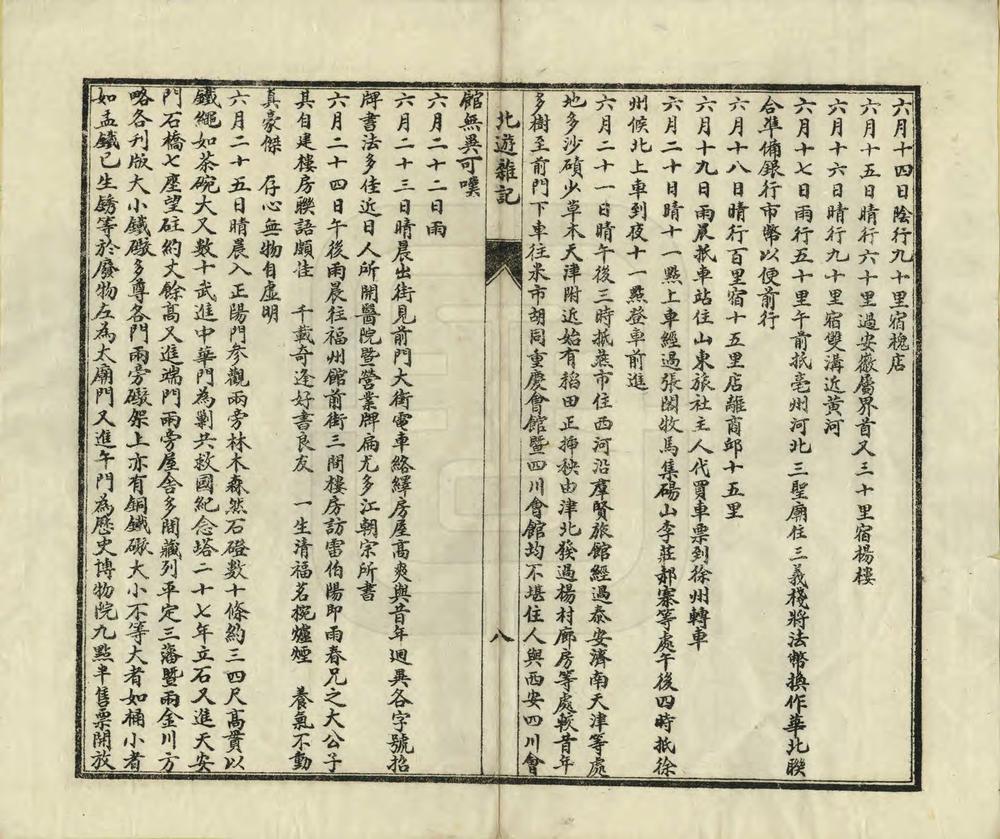 六月十四日陰行九十里宿槐店
六月十五日晴行六十里過安徽屬界首又三十里宿楊樓
六月十六日晴行九十里宿雙溝近黄河
六月十七日雨行五十里午前抵亳州河北三聖廟住三義棧將法幣換作華北聯
合準備銀行市幣以便前行
六月十八日晴行百里宿十五里店離商邱十五里
六月十九日雨晨抵車站住山東旅社主人代買車票到徐州轉車
六月二十日晴十一點上車經過張閣牧馬集碭山李莊郝寨等處午後四時抵徐
州候北上車到夜十一點登車前進
六月二十一日晴午後三時抵燕市住西河沿羣賢旅館經過泰安濟南天津等處
地多沙磧少草木天津附近始有稻田正揷秧由津北發過楊村廊房等處較昔年
多樹至前門下車往米市胡同重慶會館曁四川會館均不堪住人與西安四川會
北遊雜記
八
館無異可嘆
六月二十二日雨
六月二十三日晴晨出街見前門大街電車絡繹房屋高爽與昔年迥異各字號招
牌書法多佳近日人所開醫院曁營業牌扁尤多江朝宗所書
六月二十四日午後雨晨往福州館前街三間樓房訪雷伯陽即雨春兄之大公子
其自建樓房聯語頗佳 千載奇逢好書良友 一生清福茗椀爐煙 養氣不動
真豪傑 存心無物自虛明
六月二十五日晴晨入正陽門參觀兩旁林木森然石磴數十條約三四尺高貫以
鐵繩如茶碗大又數十武進中華門為剿共救國紀念塔二十七年立石又進天安
門石橋七座望柱約丈餘高又進端門兩旁屋舍多開藏列平定三藩曁兩金川方
略各刋版大小鐵礮多尊各門兩旁礮架上亦有銅鐵礮大小不等大者如桶小者
如盂鐵已生銹等於廢物左為太廟門又進午門為歷史博物院九點半售票開放